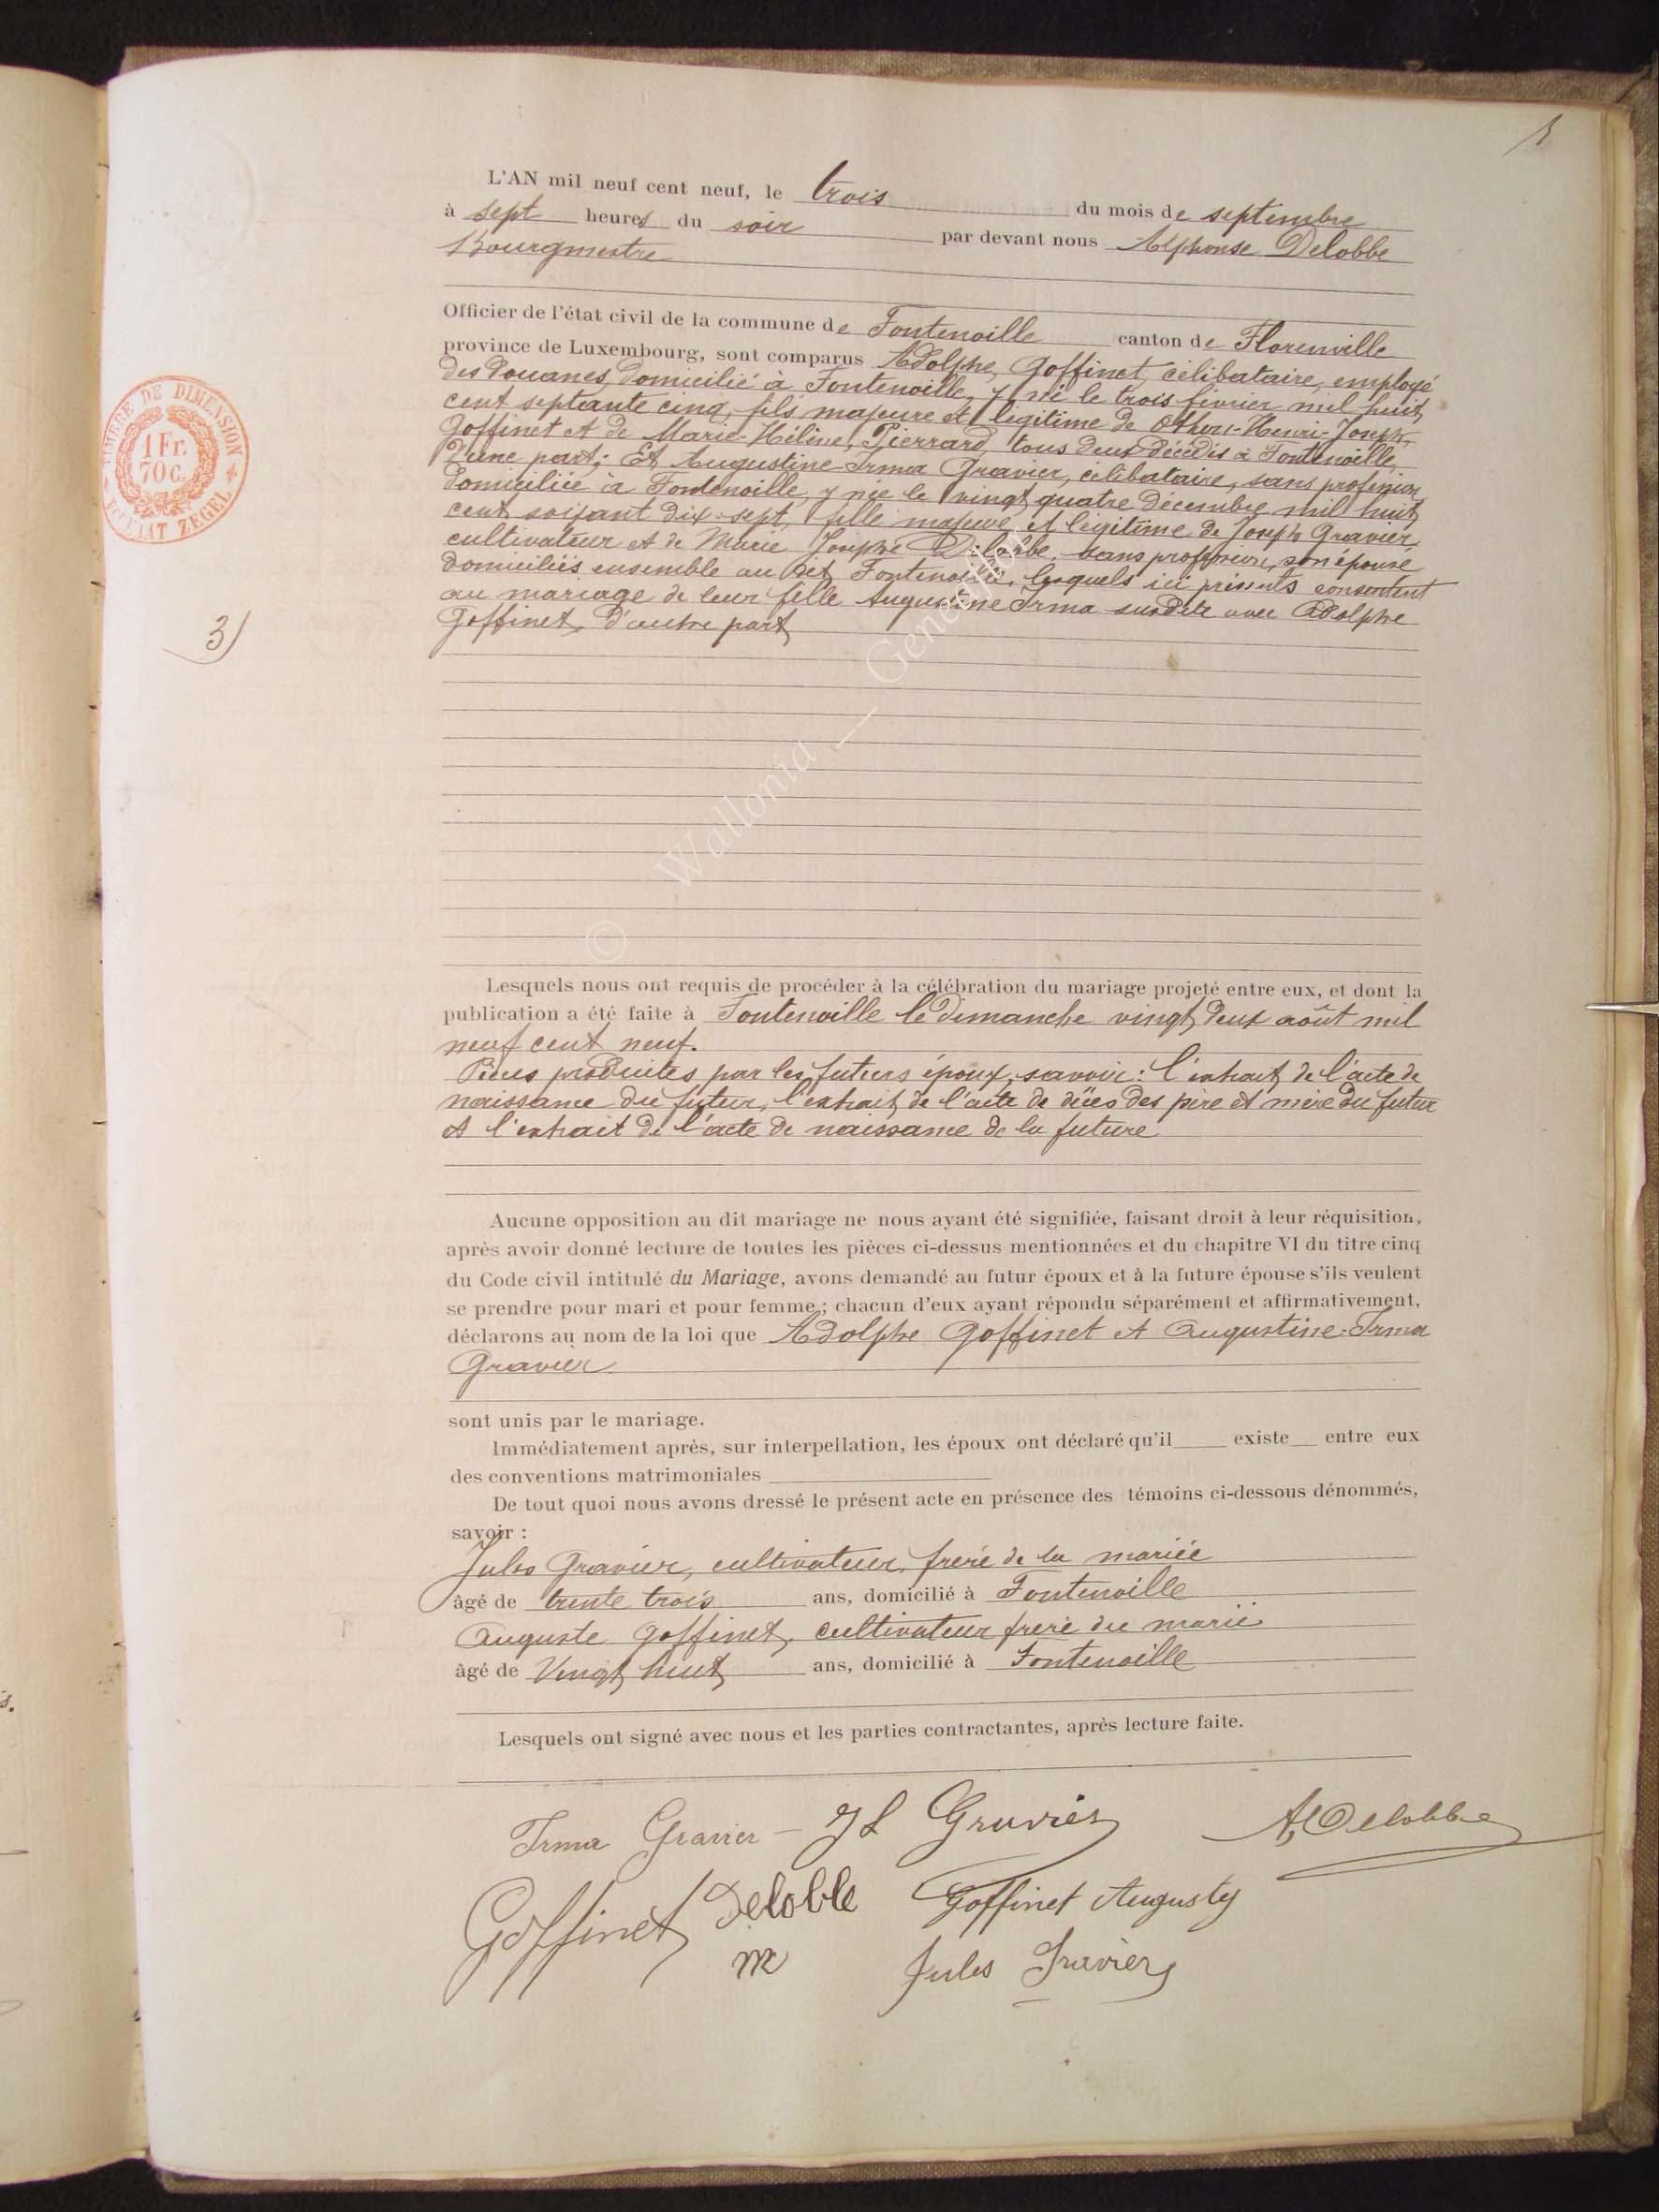 1
L'AN mil neuf cent neuf, le trois du mois de septembre
à sept heures du soir par devant nous Alphonse Delobbe
Bourgmestre
Officier de l'état civil de la commune de Fontenoille canton de Florenville
province de Luxembourg, sont comparus Adolphe, Goffinet, célibataire, employé
des Douanes, domicilié à Fontenoille, y né le trois février mil huit
cent septante cinq, fils majeure et légitime de Henri-Joseph,
Goffinet et de Marie-Hélène, Pierrard, tous deux décédés à Fontenoille,
D'une part; Et Augustine-Irma Gravier, célibataire, sans profession,
domiciliée à Fontenoille, y née le vingt quatre décembre mil huit
cent soixant dix-sept, fille majeure et légitime de Joseph Gravier
cultivateur et de Marie Josèphe Delobbe, sans profession, son épouse
domiciliés ensemble au dit Fontenoille, lesquels ici présents consentent
au mariage de leur fille Augustine Irma susdite avec Adolphe
Goffinet, d'autre part
3)
TIMBRE DE DIMENSION
1 Fr.
70 C.
ZEGEL
© Wallonia — Geneaflor
Lesquels nous ont requis de procéder à la célébration du mariage projeté entre eux, et dont la
publication a été faite à Fontenoille le Dimanche vingt deux août mil
neuf cent neuf.
Pièces produites par les futurs époux, savoir: l'extrait de l'acte de
naissance du futur, l'extrait de l'acte de décès des père et mère du futur
et l'extrait de l'acte de naissance de la future
Aucune opposition au dit mariage ne nous ayant été signifiée, faisant droit à leur réquisition,
après avoir donné lecture de toutes les pièces ci-dessus mentionnées et du chapitre VI du titre cinq
du Code civil intitulé du Mariage, avons demandé au futur époux et à la future épouse s'ils veulent
se prendre pour mari et pour femme; chacun d'eux ayant répondu séparément et affirmativement,
déclarons au nom de la loi que Adolphe Goffinet et Augustine-Irma
Gravier
sont unis par le mariage.
Immédiatement après, sur interpellation, les époux ont déclaré qu'il existe entre eux
des conventions matrimoniales
De tout quoi nous avons dressé le présent acte en présence des témoins ci-dessous dénommés,
savoir :
Jules Gravier, cultivateur, frère de la mariée
âgé de trente trois ans, domicilié à Fontenoille
Auguste Goffinet, cultivateur frère du marié
âgé de Vingt huit ans, domicilié à Fontenoille
Lesquels ont signé avec nous et les parties contractantes, après lecture faite.
Irma Gravier – J L Gravier A. Delobbe
Goffinet Deloble Goffinet Auguste
m Jules Gravier